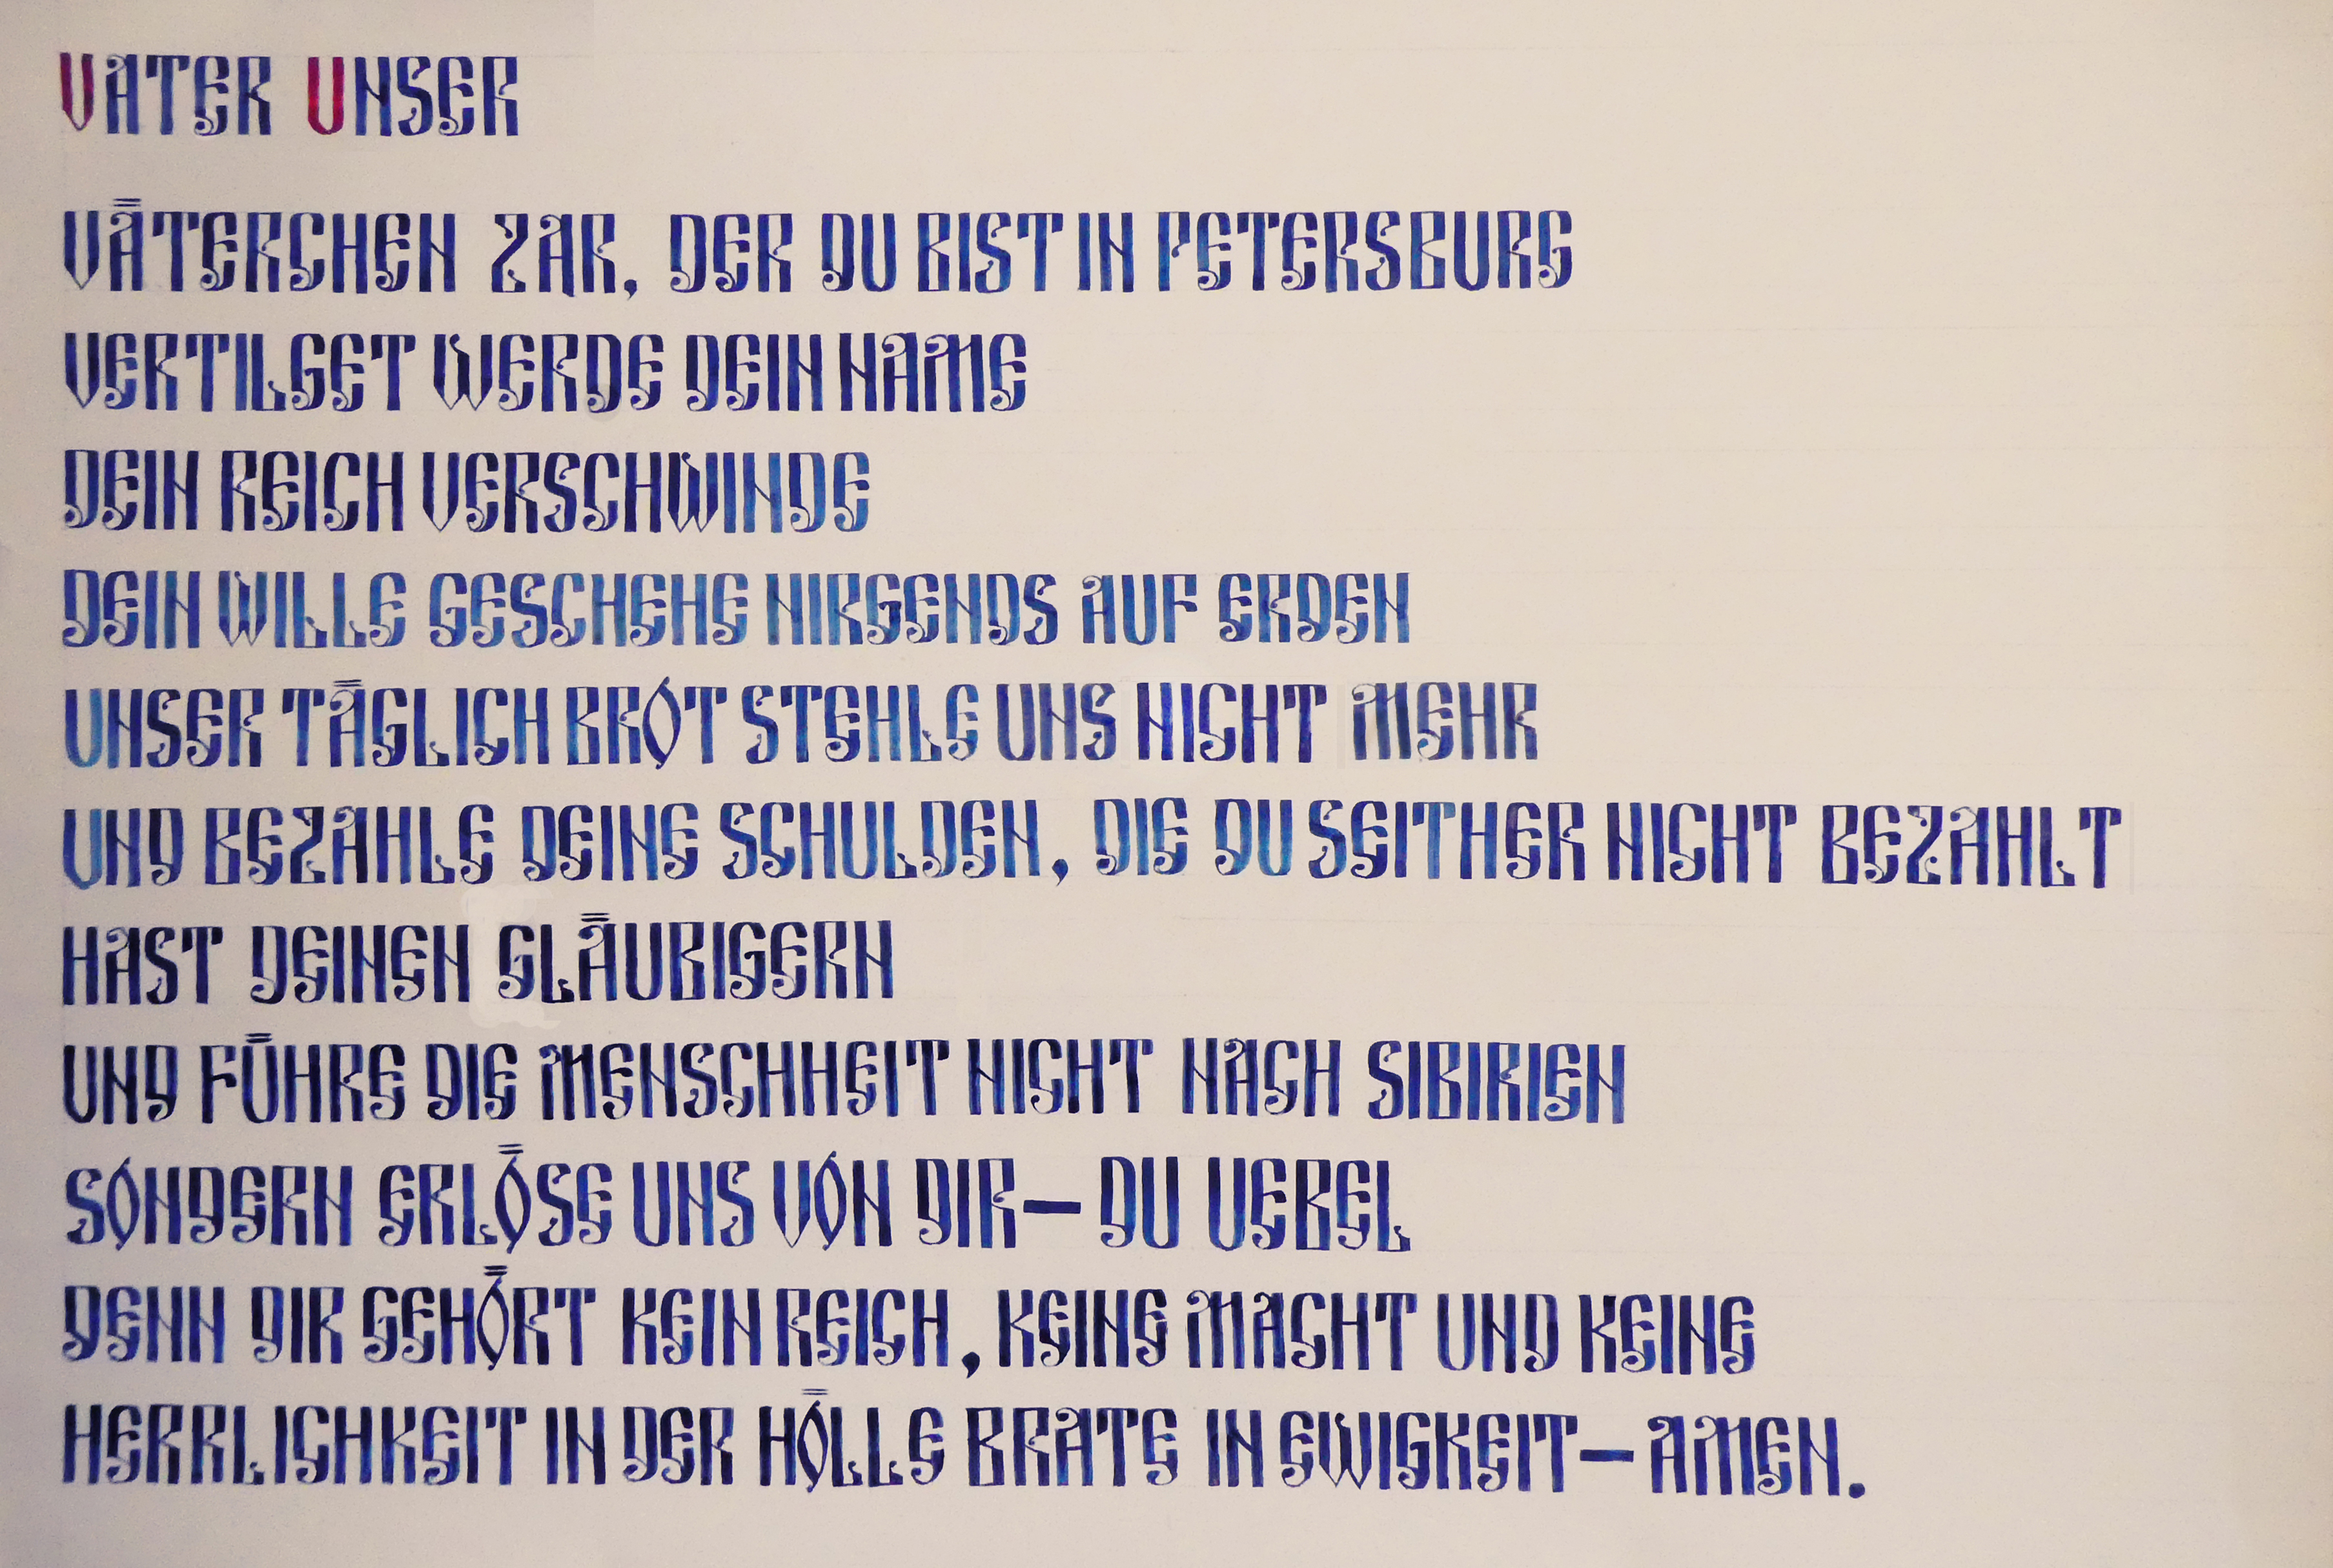 VATER UNSER
VÄTERCHEN ZAR, DER DU BIST IN PETERSBURG
VERTILGET WERDE DEIN NAME
DEIN REICH VERSCHWINDE
DEIN WILLE GESCHEHE NIRGENDS AUF ERDEN
UNSER TÄGLICH BROT STEHLE UNS NICHT MEHR
UND BEZAHLE DEINE SCHULDEN, DIE DU SEITHER NICHT BEZAHLT
HAST DEINEN GLÄUBIGERN
UND FÜHRE DIE MENSCHHEIT NICHT NACH SIBIRIEN
SONDERN ERLÖSE UNS VON DIR— DU UEBEL
DENN DIR GEHÖRT KEIN REICH, KEINE MACHT UND KEINE
HERRLICHKEIT IN DER HÖLLE BRATE IN EWIGKEIT— AMEN.